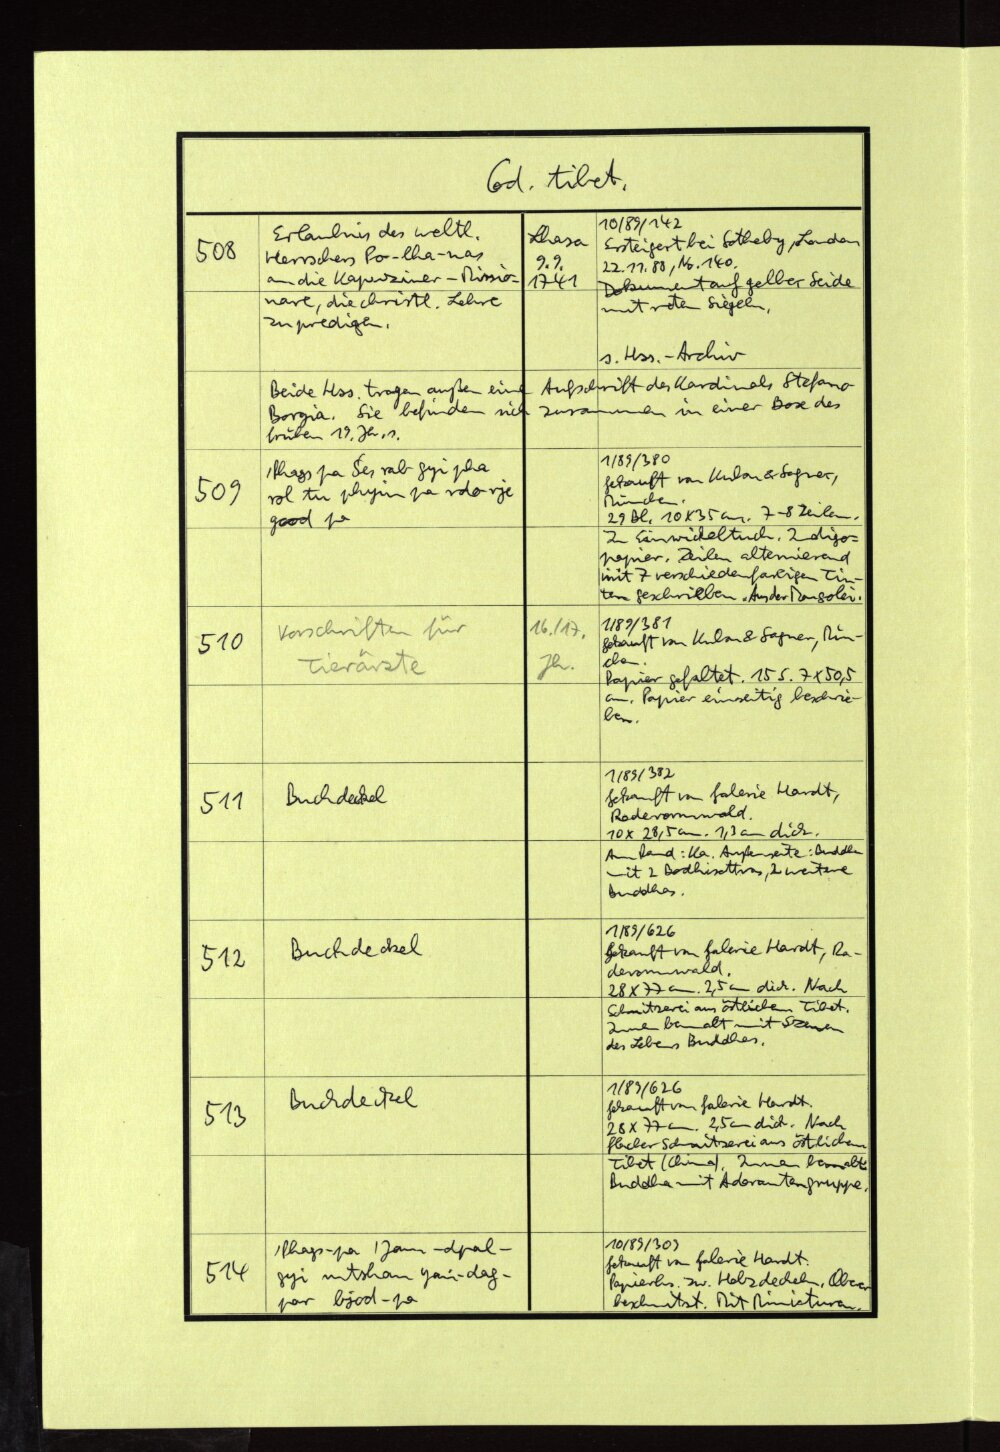 Cod. tibet.
508
Erlaubnis des weltl.
Herrschers Po-lha-nas
an die Kapuziner-Missio-
nare, die christl. Lehre
zu predigen.
Lhasa
9.9.
1741
10/89/142
Ersteigert bei Sotheby, London
22.11.88, No. 140.
Dokument auf gelber Seide
mit roten Siegeln.
s. Hss.-Archiv
Beide Hss. tragen außen eine Aufschrift des Kardinals Stefano
Borgia. Sie befinden sich zusammen in einer Box des
frühen 19. Jh.s.
509
'Phags pa Śes rab gyi pha
rol tu phyin pa rdo rje
gcod pa
1/89/380
gekauft von Kubon & Sagner,
München.
29 Bl. 10x35 cm. 7-8 Zeilen.
In Einwickeltuch. Indigo=
papier. Zeilen alternierend
mit 7 verschiedenfarbigen Tin-
ten geschrieben. Aus der Mongolei.
510
Vorschriften für
Tierärzte
16./17.
Jh.
1/89/381
gekauft von Kubon & Sagner, Mün-
chen.
Papier gefaltet. 15 S. 7x50,5
cm. Papier einseitig beschrie-
ben.
511
Buchdeckel
1/89/382
gekauft von Galerie Hardt,
Radevormwald.
10x28,5 cm. 1,3 cm dick.
Am Rand: Ka. Außenseite: Buddha
mit 2 Bodhisattvas, 2 weitere
Buddhas.
512
Buchdeckel
1/89/626
gekauft von Galerie Hardt, Ra-
devormwald.
28x77 cm. 2,5 cm dick. Nach
Schnitzerei aus östlichem Tibet.
Innen bemalt mit Szenen
des Lebens Buddhas.
513
Buchdeckel
1/89/626
gekauft von Galerie Hardt.
28x77 cm. 2,5 cm dick. Nach
flacher Schnitzerei aus östlichem
Tibet (China). Innen bemalt:
Buddha mit Adorantengruppe.
514
'Phags-pa 'Jam-dpal-
gyi mtshan yaṅ-dag-
par brjod-pa
10/89/309
gekauft von Galerie Hardt.
Papierhs. zw. Holzdeckeln. Oberer
beschnitzt. Mit Miniaturen.